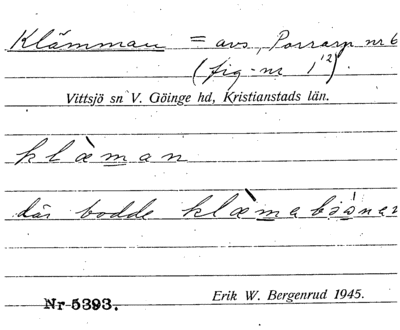 Klämman = avs. Porrarp nr 6
(fig-nr 1¹²)
Vittsjö sn V. Göinge hd, Kristianstads län.
klæ̀man
där bodde klæ̀mabösnar
Nr 5393. Erik W. Bergenrud 1945.